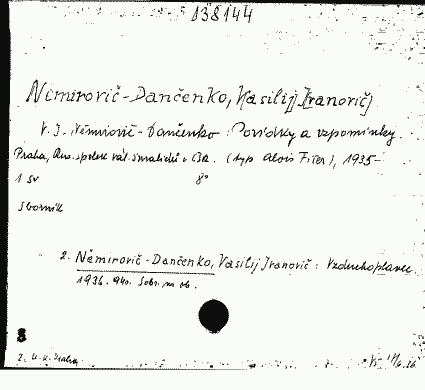 138144
Němirovič-Dančenko, Vasilij Ivanovič
V. I. Němirovič-Dančenko: Povídky a vzpomínky.
Praha, Rus. spolek vál. invalidů v ČSR. (typ. Alois Fišer), 1935-
1 sv 8°
Sborník
2. Němirovič-Dančenko, Vasilij Ivanovič: Vzduchoplavec
1936. 94s. Sobr. na ob.
8
2. U. K. Praha